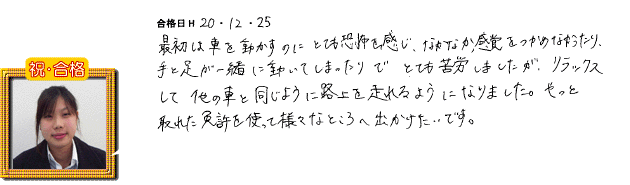 合格日 H 20・12・25
最初は車を動かすのにとても恐怖を感じ、なかなか感覚をつかめなかったり、
手と足が一緒に動いてしまったりでとても苦労しましたが、リラックス
して他の車と同じように路上を走れるようになりました。やっと
取れた免許を使って様々なところへ出かけたいです。
祝・合格